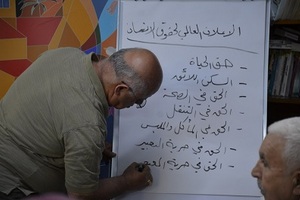 الاعلان العالمي لحقوق الانسان
- حق الحياة
- السكن اللائق
- الحق في الصحة
- الحق في التنقل
- الحق في المأكل والملبس
- الحق في حرية التعبير
- الحق في حرية المعتقد